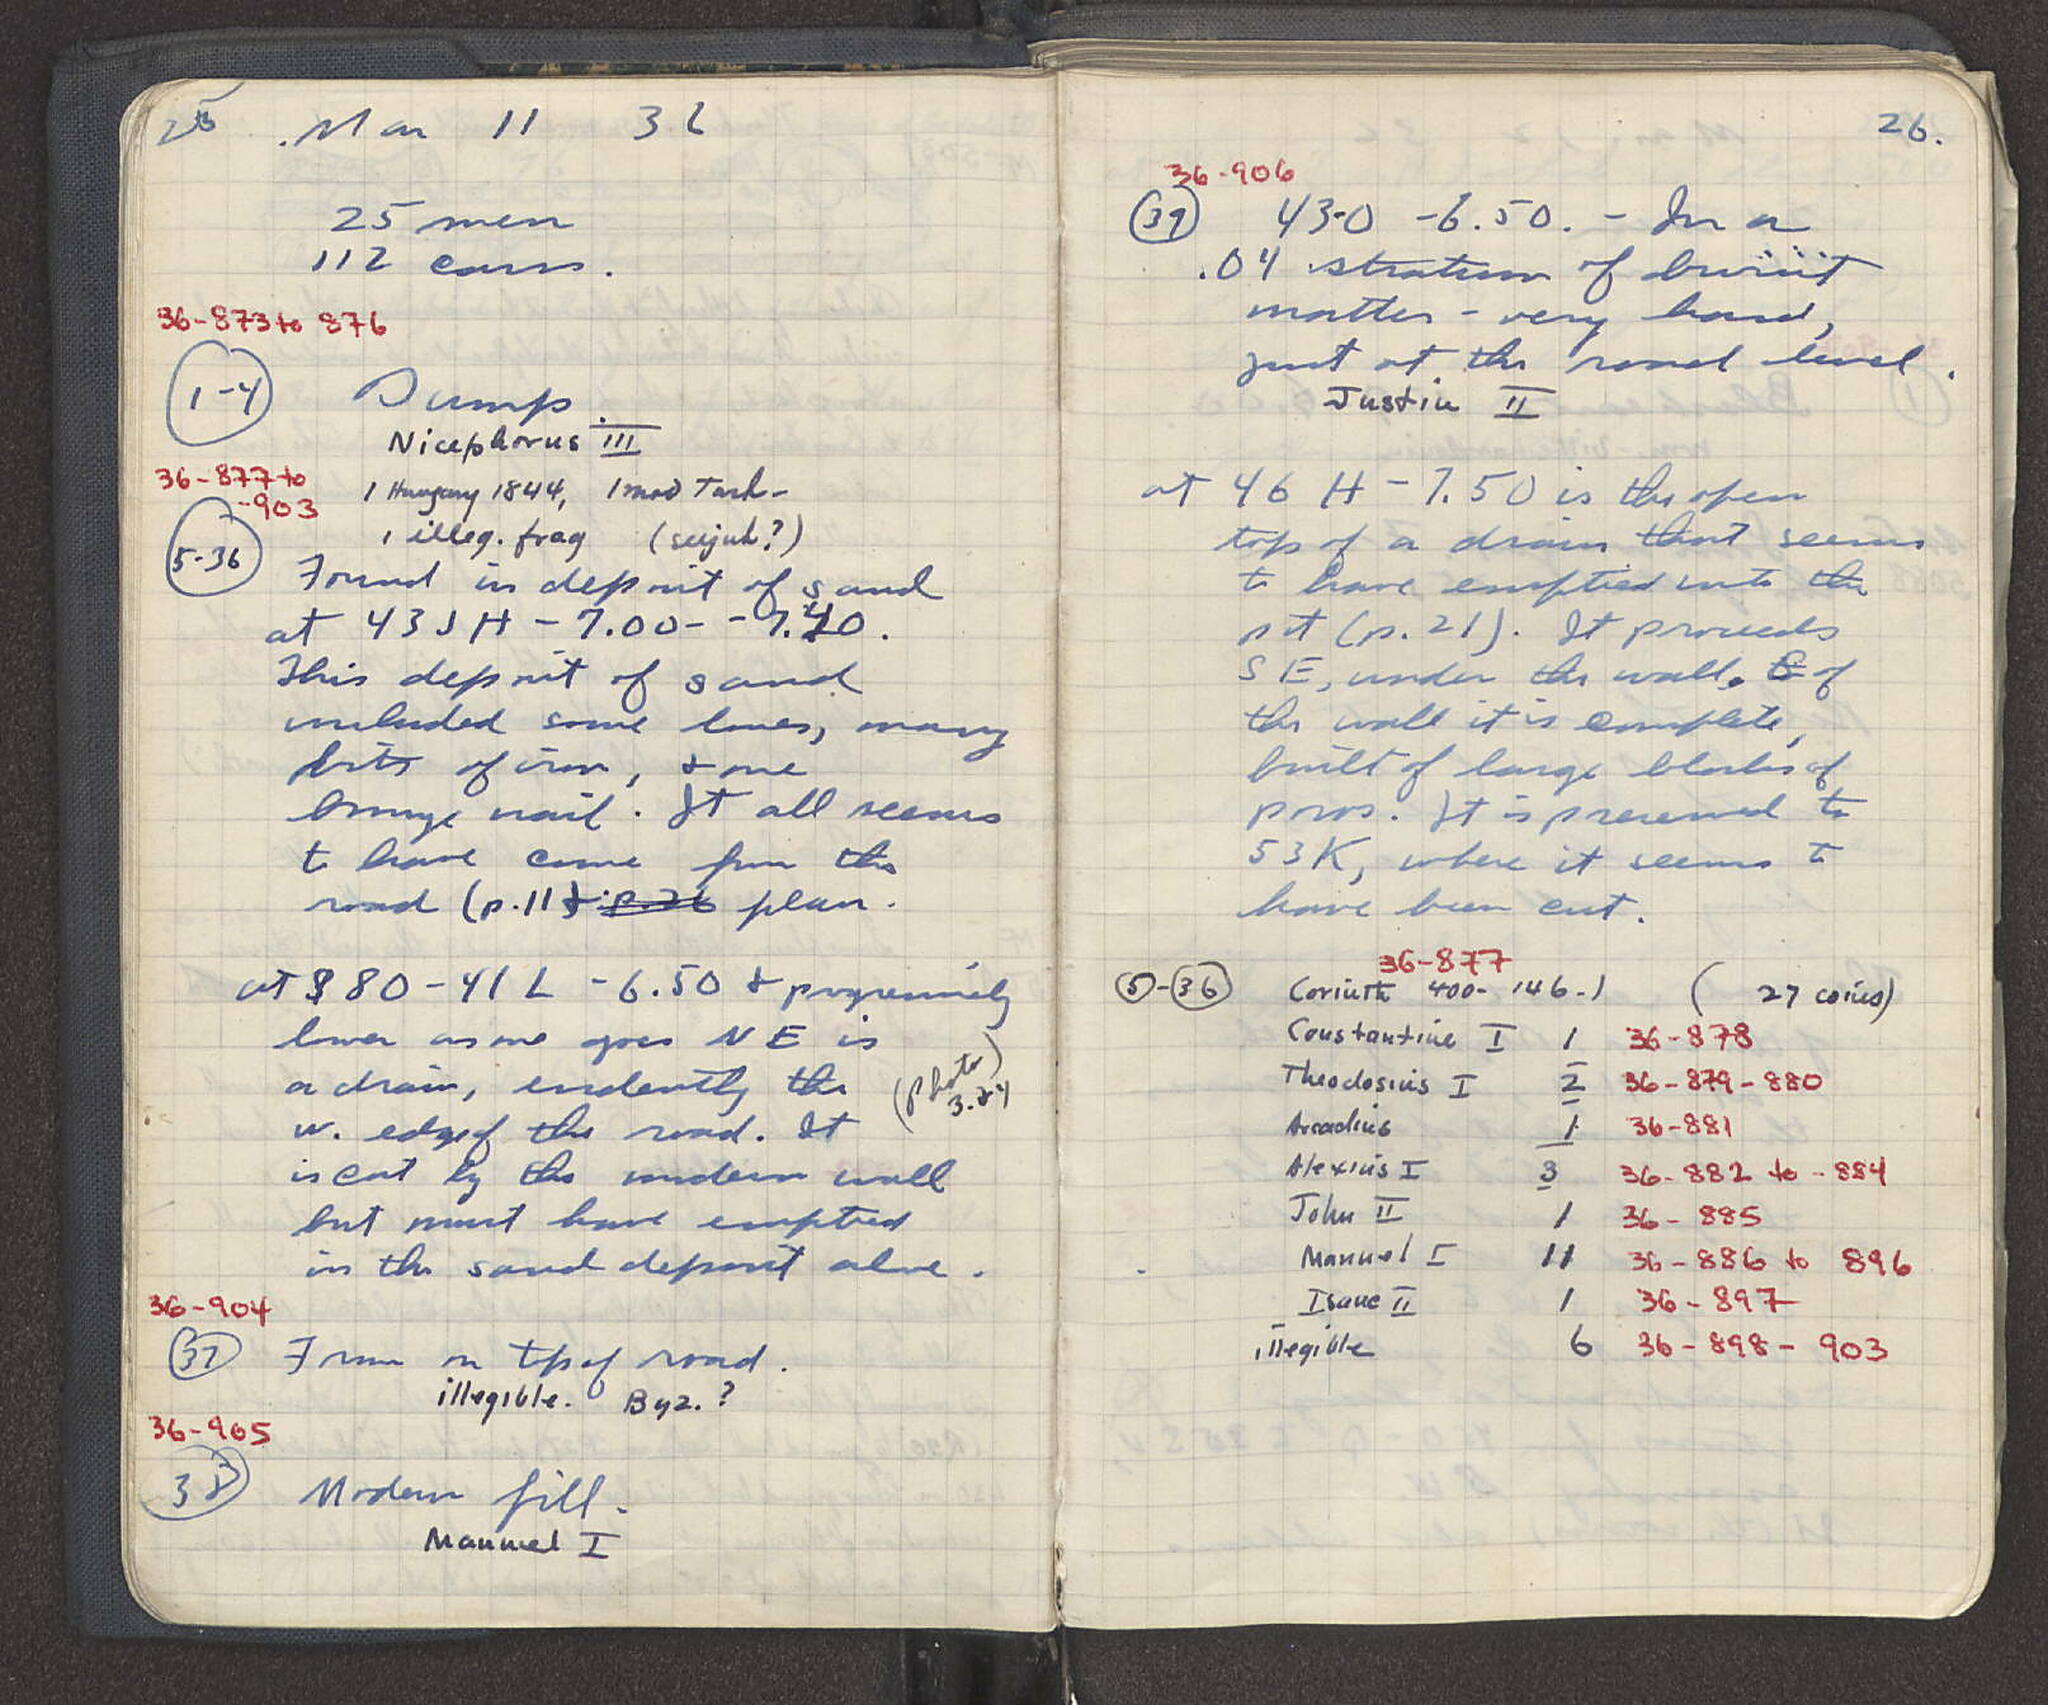 25
Mar 11 36
25 men
112 cars.
36-873 to 876
1-4 Dump.
Nicephorus III
36-877 to
-903
1 Hungary 1844, 1 mod Turk-
1 illeg. frag (seljuk?)
5-36 Found in deposit of sand
at 43 J H - 7.00 - -7.40.
This deposit of sand
included some bones, many
bits of iron, & one
bronze nail. It all seems
to have come from the
road (p.11 & p.26 plan.
at 80 - 41 L - 6.50 & progressively
lower as one goes NE is
a drain, evidently the
(photo
3.24)
w. edge of the road. It
is cut by the modern wall
but must have emptied
in the sand deposit above.
36-904
37 From on top of road.
illegible. Byz.?
36-905
38 Modern fill.
Manuel I
26.
36-906
39 43-0 -6.50. - In a
.04 stratum of burnt
matter - very hard,
just at the road level.
Justin II
at 46 H - 7.50 is the open
top of a drain that seems
to have emptied into the
pit (p.21). It proceeds
SE, under the wall. E of
the wall it is complete,
built of large blocks of
poros. It is preserved to
53K, where it seems to
have been cut.
36-877
5-36 Corinth 400-146-1 (27 coins)
Constantine I 1 36-878
Theodosius I 2 36-879-880
Arcadius 1 36-881
Alexius I 3 36-882 to -884
John II 1 36-885
Manuel I 11 36-886 to 896
Isaac II 1 36-897
illegible 6 36-898-903